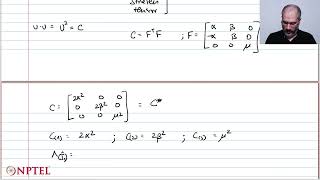 stretch
tensor
U·U = U² = C C = FᵀF ; F = [α β 0
-α β 0
0 0 μ]
C = [2α² 0 0
0 2β² 0
0 0 μ²] = C*
C₍₁₎ = 2α² ; C₍₂₎ = 2β² ; C₍₃₎ = μ²
=
NPTEL